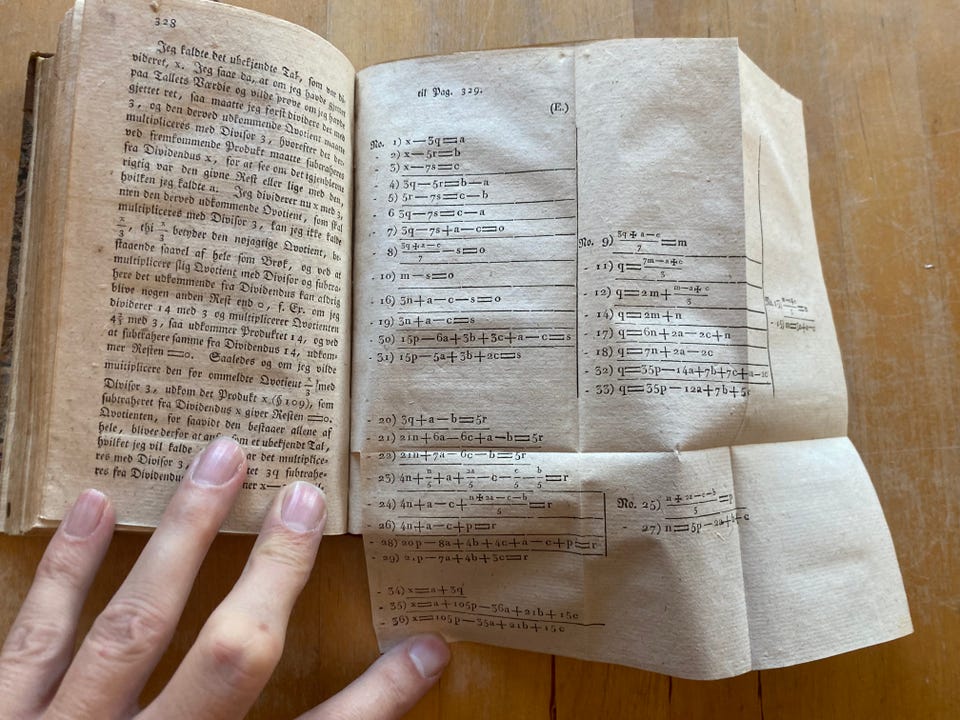 328
Jeg kaldte det ubekjendte Tal, som var di-
videret, x. Jeg saae da, at om jeg havde gjettet
paa Tallets Værdie og vilde prøve om jeg havde
gjettet ret, saa maatte jeg først dividere det med
3, og den derved udkommende Qvotient maatte
multipliceres med Divisor 3, hvorefter det der-
ved fremkommende Produkt maatte subtraheres
fra Dividendus x, for at see om det igjenblevne
rigtig var den givne Rest eller lige med den,
hvilken jeg kaldte a. Jeg dividerer nu x med 3,
men den derved udkommende Qvotient, som skal
multipliceres med Divisor 3, kan jeg ikke kalde
x/3, thi x/3 betyder den nøjagtige Qvotient, be-
staaende saavel af hele som Brøk, og ved at
multiplicere slig Qvotient med Divisor og subtra-
here det udkommende fra Dividendus kan aldrig
blive nogen anden Rest end 0, f. Ex. om jeg
dividerer 14 med 3 og multiplicerer Qvotienten
4⅔ med 3, saa udkommer Produktet 14, og ved
at subtrahere samme fra Dividendus 14, udkom-
mer Resten =0. Saaledes og om jeg vilde
multiplicere den før ommeldte Qvotient x/3 med
Divisor 3, udkom det Produkt x (§ 109), som
subtraheret fra Dividendus x giver Resten =0.
Qvotienten, for saavidt den bestaaer allene af
hele, bliver derfor at som et ubekjendt Tal,
hvilket jeg vil kalde ar det multiplice-
res med Divisor 3, tet 3q subtrahe-
res fra Dividendu ner x—
til Pag. 329.
(E.)
No. 1) x—3q=a
- 2) x—5r=b
- 3) x—7s=c
- 4) 3q—5r=b—a
- 5) 5r—7s=c—b
- 6 3q—7s=c—a
- 7) 3q—7s+a—c=0
- 8) (3q+a—c)/7—s=0
- 10) m—s=0
- 16) 3n+a—c—s=0
- 19) 3n+a—c=s
- 30) 15p—6a+3b+3c+a—c=s
- 31) 15p—5a+3b+2c=s
No. 9) (3q+a—c)/7=m
- 11) q=(7m—a+c)/3
- 12) q=2m+(m—a+c)/3
- 14) q=2m+n
- 17) q=6n+2a—2c+n
- 18) q=7n+2a—2c
- 32) q=35p—14a+7b+7c+a—2c
- 33) q=35p—12a+7b+5c
No. 13) (m—a+c)/3=n
- 15) m=3n+a—c
- 20) 3q+a—b=5r
- 21) 21n+6a—6c+a—b=5r
- 22) 21n+7a—6c—b=5r
- 23) 4n+n/5+a+2a/5—c—c/5—b/5=r
- 24) 4n+a—c+(n+2a—c—b)/5=r
- 26) 4n+a—c+p=r
- 28) 20p—8a+4b+4c+a—c+p=r
- 29) 21p—7a+4b+3c=r
No. 25) (n+2a—c—b)/5=p
- 27) n=5p—2a+b+c
- 34) x=a+3q
- 35) x=a+105p—36a+21b+15c
- 36) x=105p—35a+21b+15c